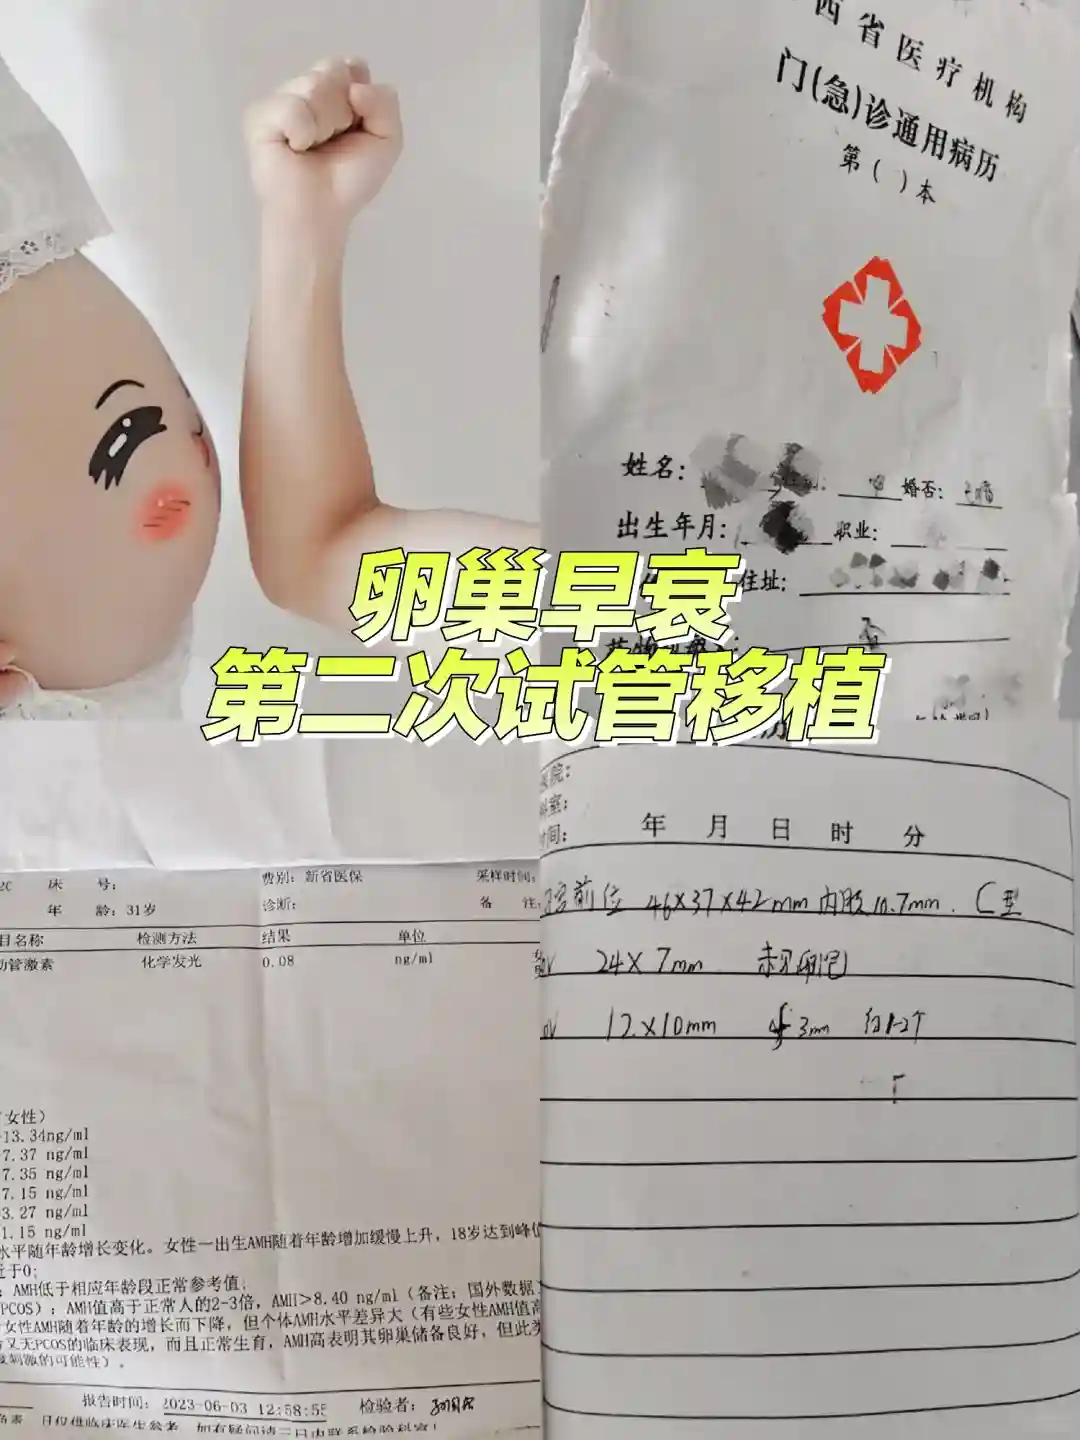 西省医疗机构
门(急)诊通用病历
第( )本
姓名:
婚否:
出生年月:
职业:
住址:
卵巢早衰
第二次试管移植
年 月 日 时 分
前位 46×37×42mm 内膜10.7mm. C型
24×7mm 未见卵泡
12×10mm 3mm 1-2个
床 号:
费别: 新省医保
采样时间:
年 龄: 31岁
诊断:
备 注:
目名称 检测方法 结果 单位
管激素 化学发光 0.08 ng/ml
女性)
13.34ng/ml
7.37 ng/ml
7.35 ng/ml
7.15 ng/ml
3.27 ng/ml
1.15 ng/ml
水平随年龄增长变化。女性一出生AMH随着年龄增加缓慢上升, 18岁达到峰
近于0;
: AMH低于相应年龄段正常参考值;
PCOS): AMH值高于正常人的2-3倍, AMH>8.40 ng/ml (备注: 国外数据
女性AMH随着年龄的增长而下降, 但个体AMH水平差异大 (有些女性AMH值高
又无PCOS的临床表现, 而且正常生育, AMH高表明其卵巢储备良好, 但此
刺激的可能性)。
报告时间: 2023-06-03 12:58:55 检验者: